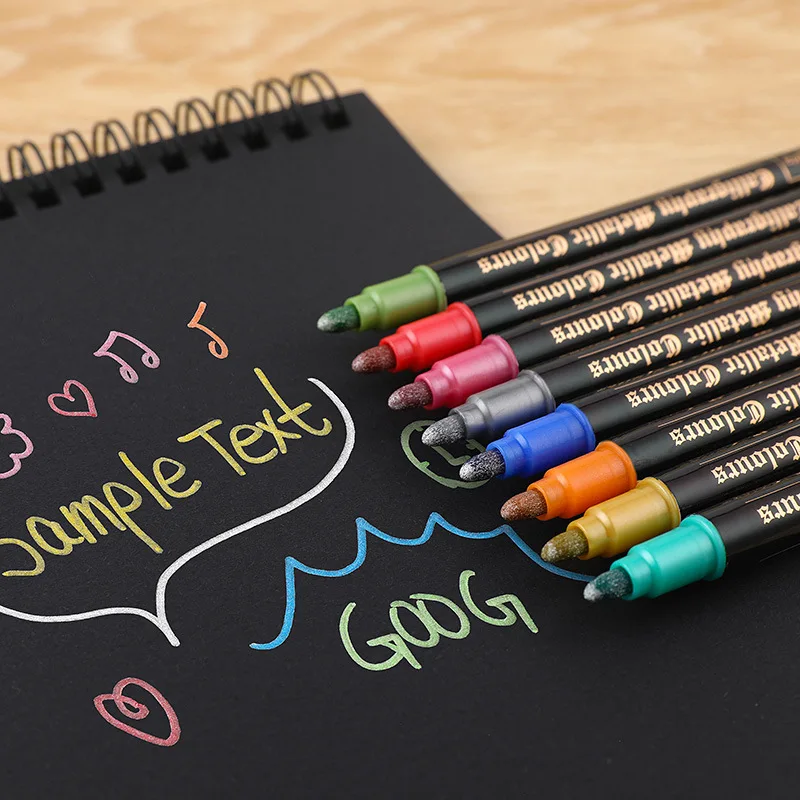 Sample Text
GOOG
Calligraphy Metallic Colours
Calligraphy Metallic Colours
Metallic Colours
Metallic Colours
Metallic Colours
Colours
Colours